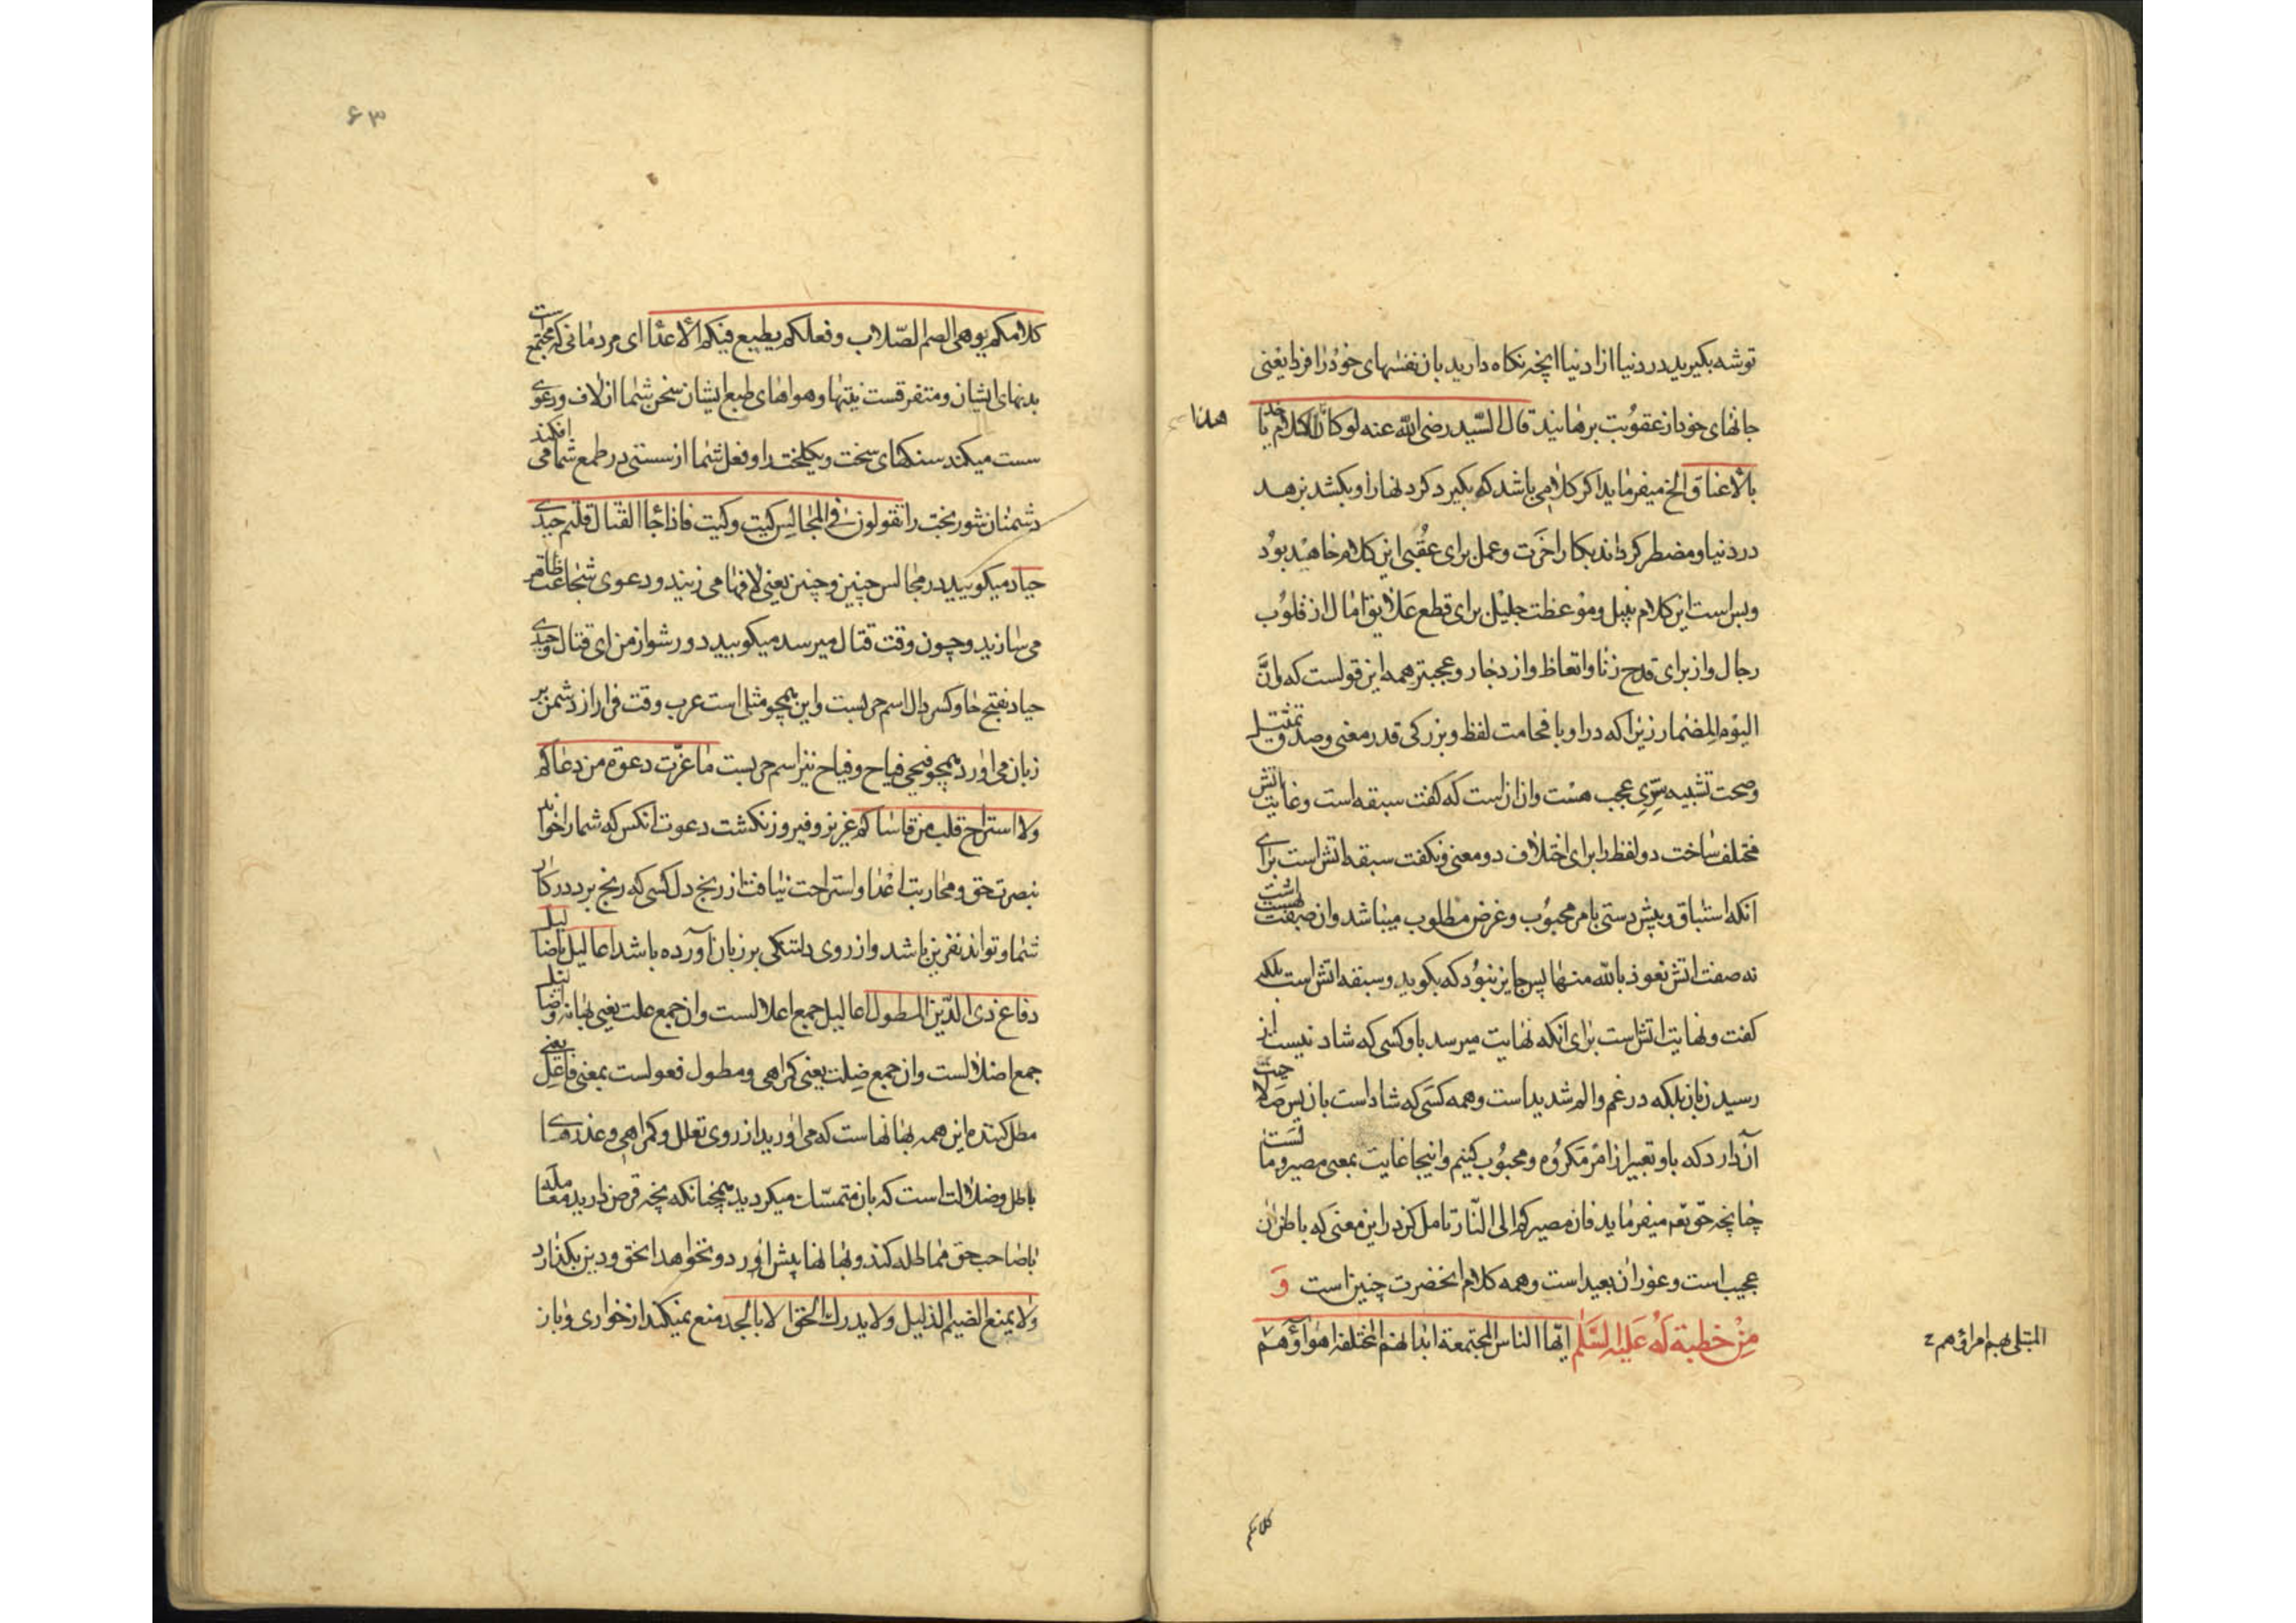 توشه بکیرید در دنیا از دنیا انچه نکاه دارید بان نفسهای خود را فردا یعنی
جانهای خود از عقوبت برهانید قال السید رضی الله عنه لو کان الکلام یاخذ
هذا
بالاعناق الخ میفرماید اکر کلامی باشد که بکیرد کردنها را و بکشد بزهد
در دنیا و مضطر کرداند بکار اخرت و عمل برای عقبی این کلام خاهد بود
و بس است این کلام نبیل و موعظت جلیل برای قطع علایق امال از قلوب
رجال و از برای قدح زناد اتعاظ و ازدجار و عجبتر همه این قولست که وانّ
الیوم المضمار زیرا که در او با فخامت لفظ و بزرکی قدر معنی و صدق تمثیل
و صحت تشبیه سرّی عجب هست و ان انست که کفت سبقه است و غایت اتش
مختلف ساخت دو لفظ را برای اختلاف دو معنی و نکفت سبقه اتش است برای
انکه استباق و پیش دستی بامر محبوب و غرض مطلوب میباشد و ان صفت بهشت است
نه صفت اتش نعوذ بالله منها پس جایز نبود که بکوید و سبقه اتش است بلکه
کفت و نهایت اتش است برای انکه نهایت میرسد باو کسی که شاد نیست از
رسیدن بان بلکه در غم و الم شدید است و همه کسی که شاد است بان پس صلاحیت
آن دارد که باو تعبیر از امر مکروه و محبوب کنیم و اینجا غایت بمعنی مصیر و مالست
چنانچه حق تع میفرماید فان مصیرکم الی النار تامل کن در این معنی که باطن ان
عجیب است و غور ان بعید است و همه کلام انحضرت چنین است وَ
مِنْ خطبة لَهُ عَلیه السَّلٰم ایّها الناس المجتمعة ابدانهم المختلفه اهواؤهم
المبتلی بهم امراؤهم
کلامکم
۶۳
کلامکم یوهی الصم الصّلاب و فعلکم یطیع فیکم الاعدا ای مردمانی که مجتمعست
بدنهای ایشان و متفرقست نیتها و هواهای طبع ایشان سخن شما از لاف و دعوی
سست میکند سنکهای سخت و یکلخت را و فعل شما از سستی در طمع شما می افکند
دشمنان شوربخت را تقولون فی المجالس کیت و کیت فاذا جاء القتال قلتم حیدی
حیاد میکویید در مجالس چنین و چنین یعنی لافها می زنید و دعوی شجاعت ظاهر
می سازید و چون وقت قتال میرسد میکویید دور شو از من ای قتال و حیدی
حیاد بفتح حا و کسر دال اسم حربست و این همچو مثلی است عرب وقت فرار از دشمن بر
زبان می اورد همچو فیحی فیاح و فیاح نیز اسم حربست ما عزّت دعوة من دعاکم
ولا استراح قلب من قاساکم عزیز و فیروز نکشت دعوت انکس که شما را خواند
بنصرت حق و محاربت اعدا و استراحت نیافت از رنج دل کسی که رنج برد در کار
شما و تواند نفرین باشد و از روی دلتنکی بر زبان آورده باشد اعالیل باضالیل
دفاع ذی الدّین المطول اعالیل جمع اعلالست و ان جمع علت یعنی بهانه و اضالیل
جمع اضلالست و ان جمع ضلت یعنی کمراهی و مطول فعولست بمعنی فاعل یعنی
مطل کننده این همه بهانهاست که می اورید از روی تعلل و کمراهی و عذرهای
باطل و ضلالت است که بان متمسّک میکردید همچنانکه بچه قرض دارید معامله
باصاحب حق مماطله کند و بهانها پیش اورد و نخواهد انحق و دین بکذارد
ولا یمنع الضیم الذلیل ولا یدرک الحق الا بالجد منع نمیکند از خواری و باز